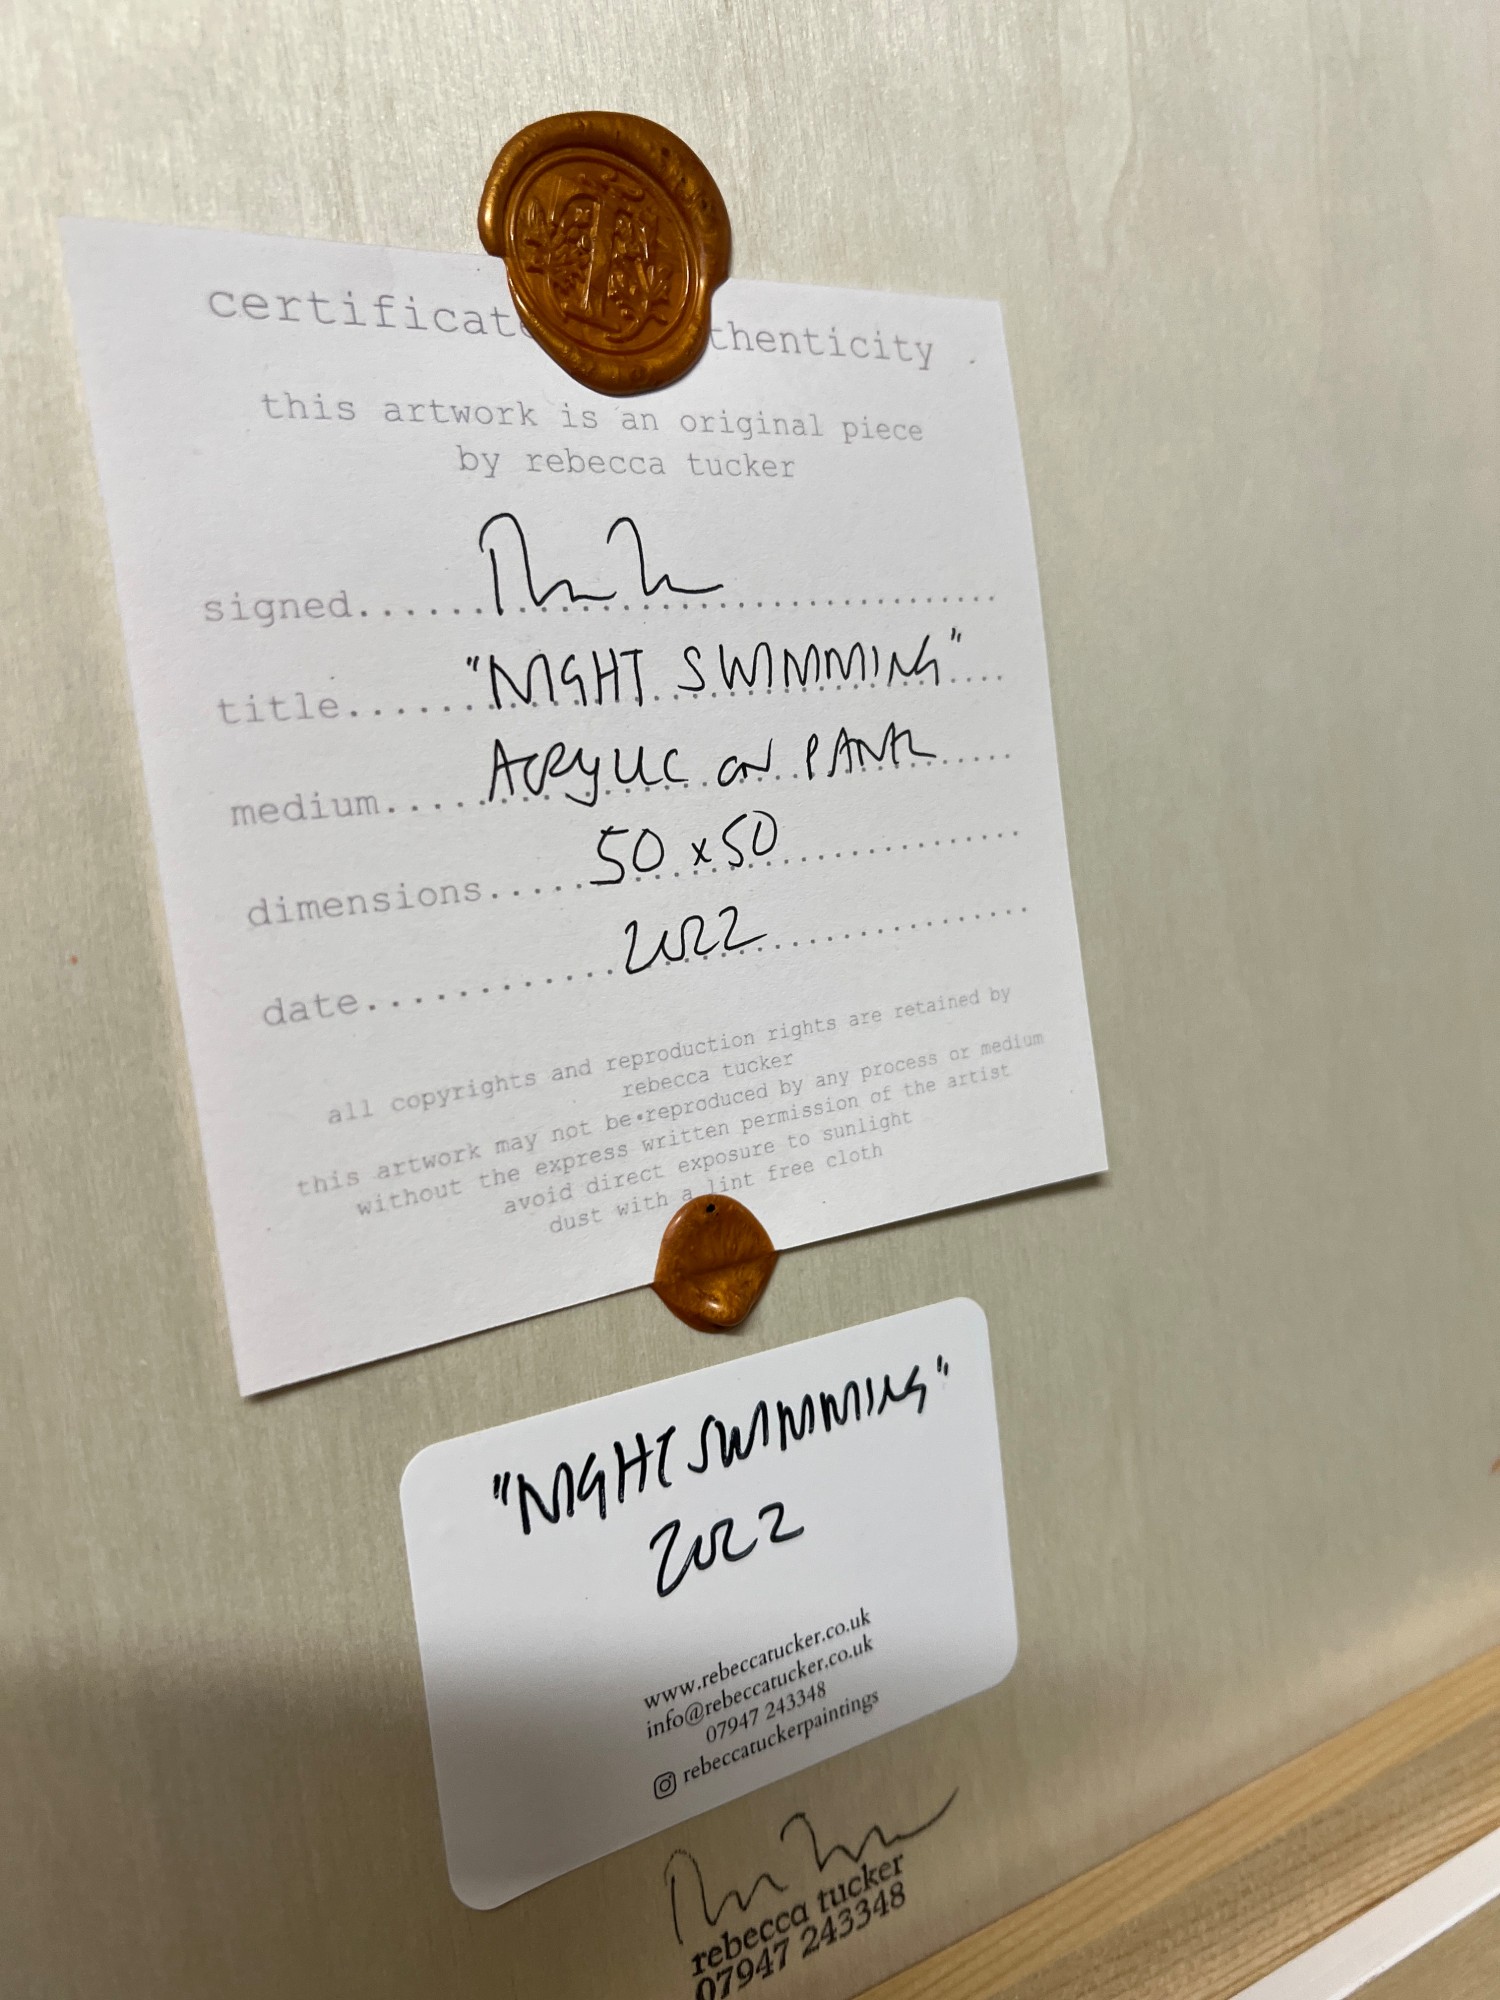 certificate thenticity
this artwork is an original piece
by rebecca tucker
signed
title "NIGHT SWIMMING"
medium ACRYLIC ON PANEL
dimensions 50 x 50
date 2022
all copyrights and reproduction rights are retained by
rebecca tucker
this artwork may not be reproduced by any process or medium
without the express written permission of the artist
avoid direct exposure to sunlight
dust with a lint free cloth
"NIGHT SWIMMING"
2022
www.rebeccatucker.co.uk
info@rebeccatucker.co.uk
07947 243348
rebeccatuckerpaintings
rebecca tucker
07947 243348